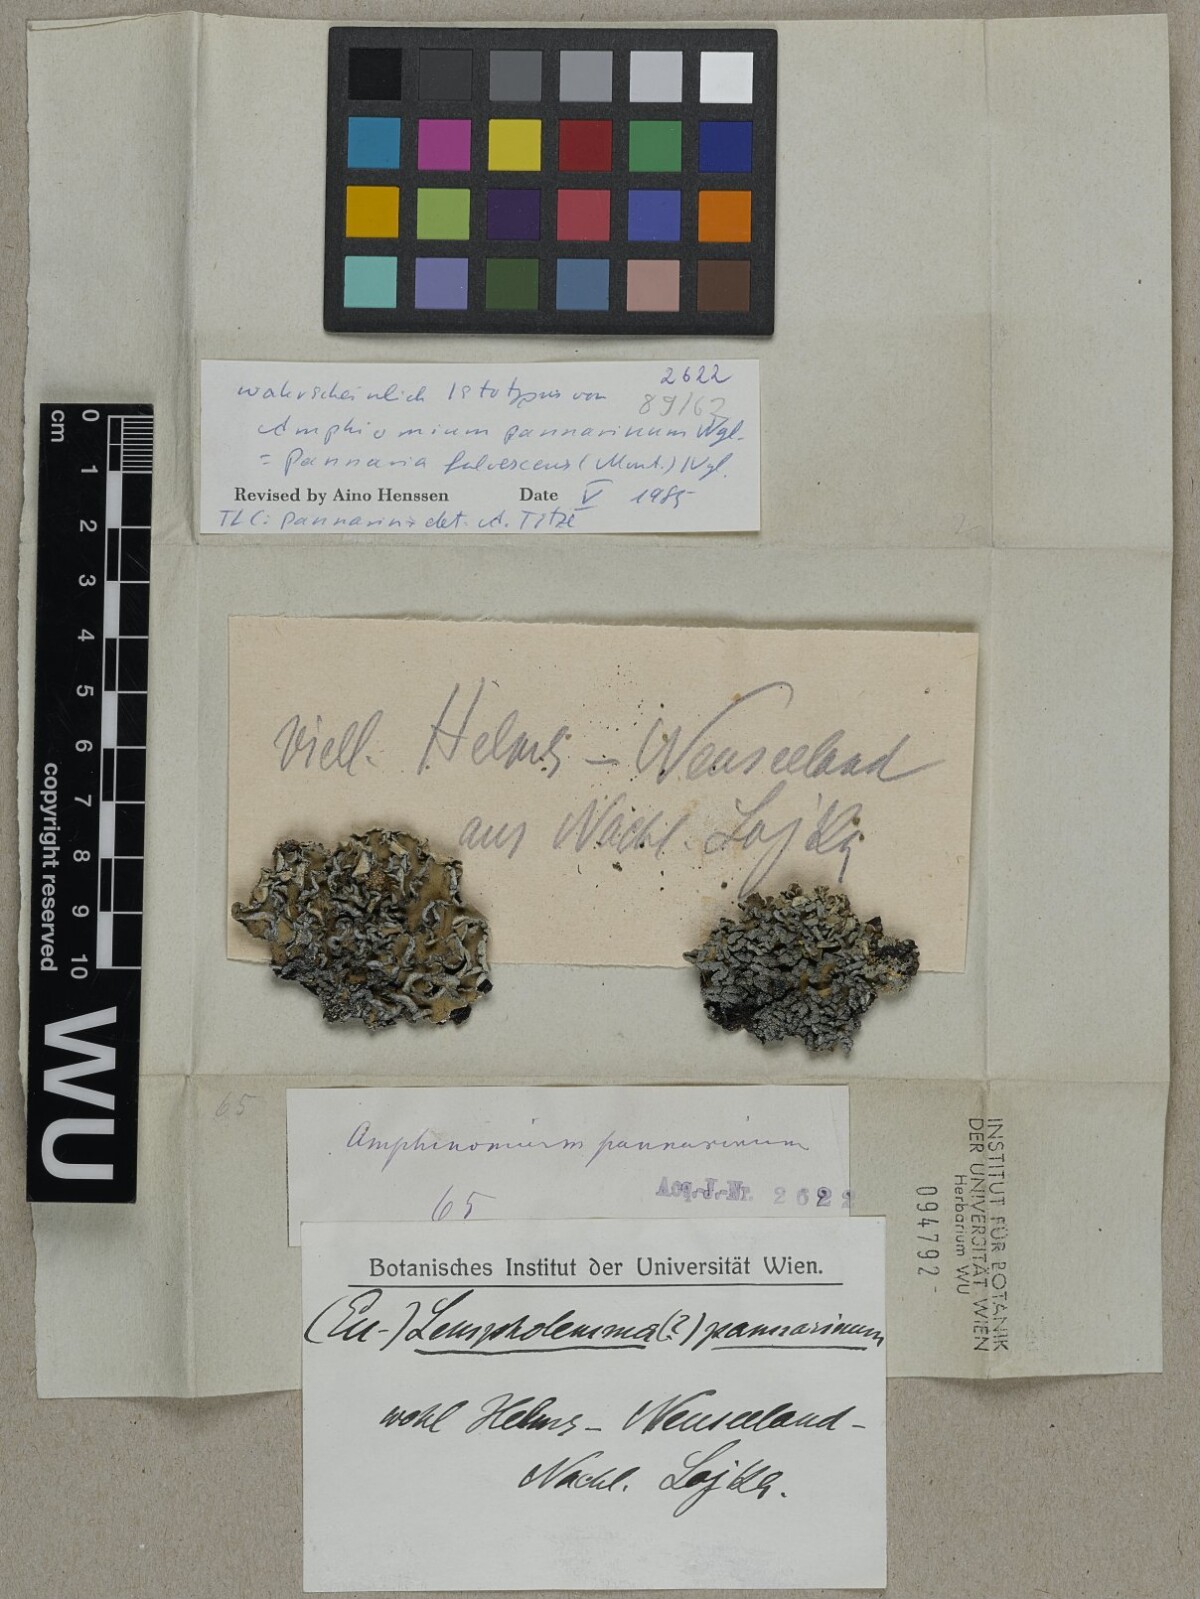 2622
wahrscheinlich Isotypus von 89/62
Amphinomium pannarinum Nyl.
= Pannaria fulvescens (Mont.) Nyl.
Revised by Aino Henssen Date V 1985
TLC: pannarin det. A. Titze
cm 0 1 2 3 4 5 6 7 8 9 10
copyright reserved
WU
viell. Helms – Neuseeland
aus Nachl. Lojka
65
Amphinomium pannarinum
65
Acq.-J.-Nr. 2622
INSTITUT FÜR BOTANIK
DER UNIVERSITÄT WIEN
Herbarium WU
094792
Botanisches Institut der Universität Wien.
(Eu-) Lempholemma (?) pannarinum
wohl Helms – Neuseeland –
Nachl. Lojka.